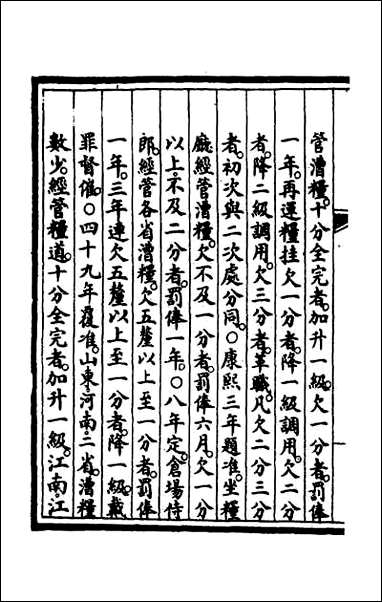 管漕糧十分全完者加升一級欠一分者罰俸
一年再運糧挂欠一分者降一級調用欠二分
者降二級調用欠三分者革職凡欠二分三分
者初次與二次處分同○康熙三年題准坐糧
廳經管漕糧欠不及一分者罰俸六月欠一分
以上不及二分者罰俸一年○八年定倉場侍
郎經管各省漕糧欠五釐以上至一分者罰俸
一年三年連欠五釐以上至一分者降一級戴
罪督催○四十九年覆准山東河南二省漕糧
數少經管糧道十分全完者加升一級江南江